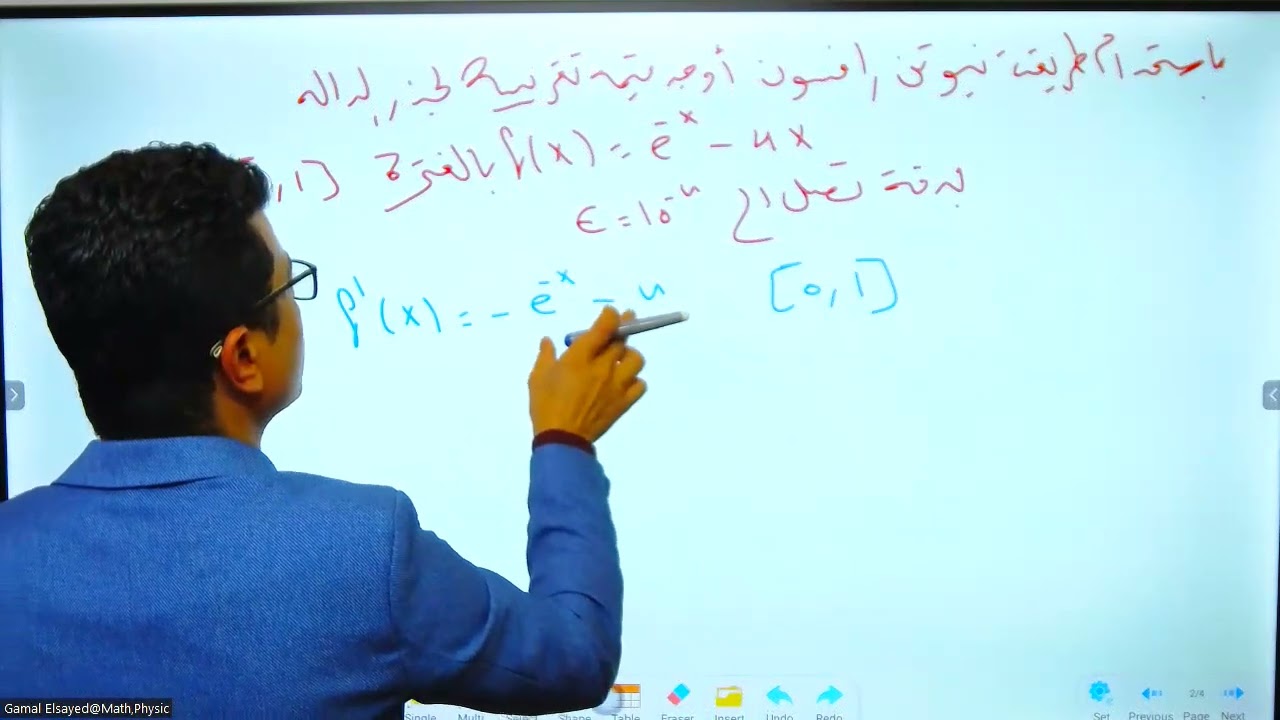 باستخدام طريقة نيوتن رافسون أوجد قيمة تقريبية لجذر الدالة
f(x) = e^-x - 4x بالفترة , 1]
بدقة تصل الى ε = 10^-4
f'(x) = - e^-x - 4 [0, 1]
Single Multi Select Shape Table Eraser Insert Undo Redo Set Previous 2/4 Page Next
Gamal Elsayed@Math,Physic